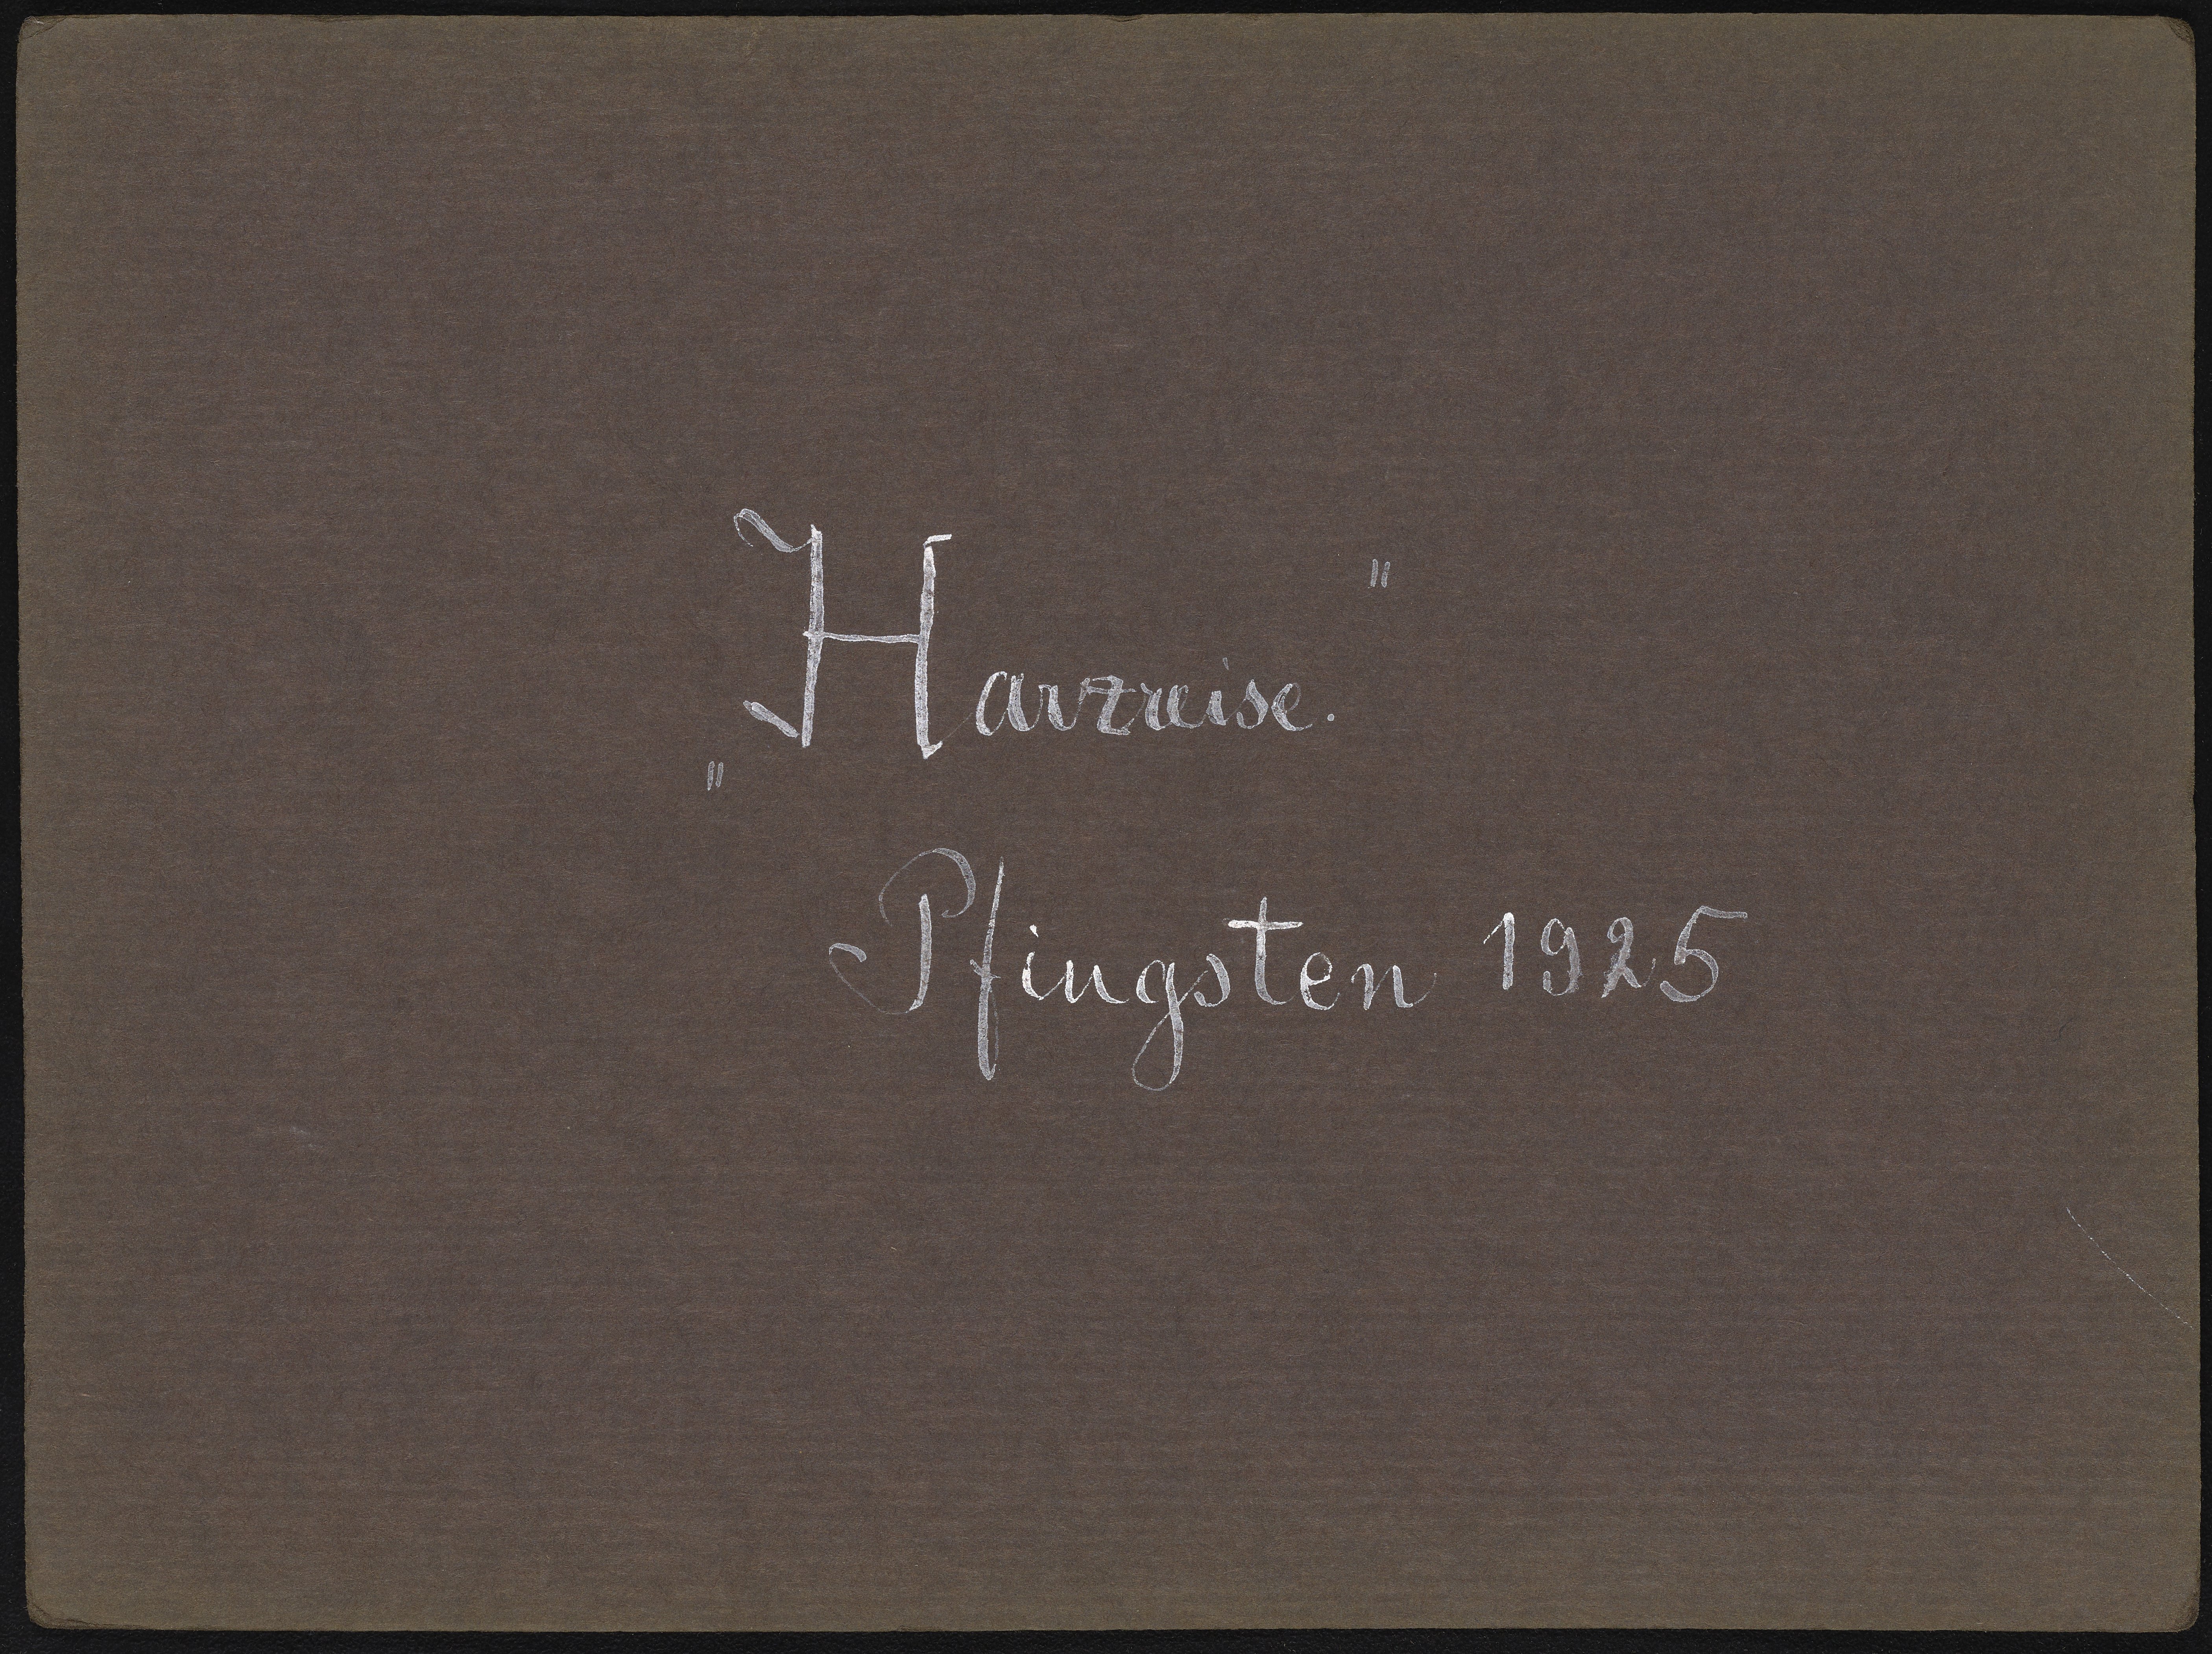 „Harzreise."
Pfingsten 1925